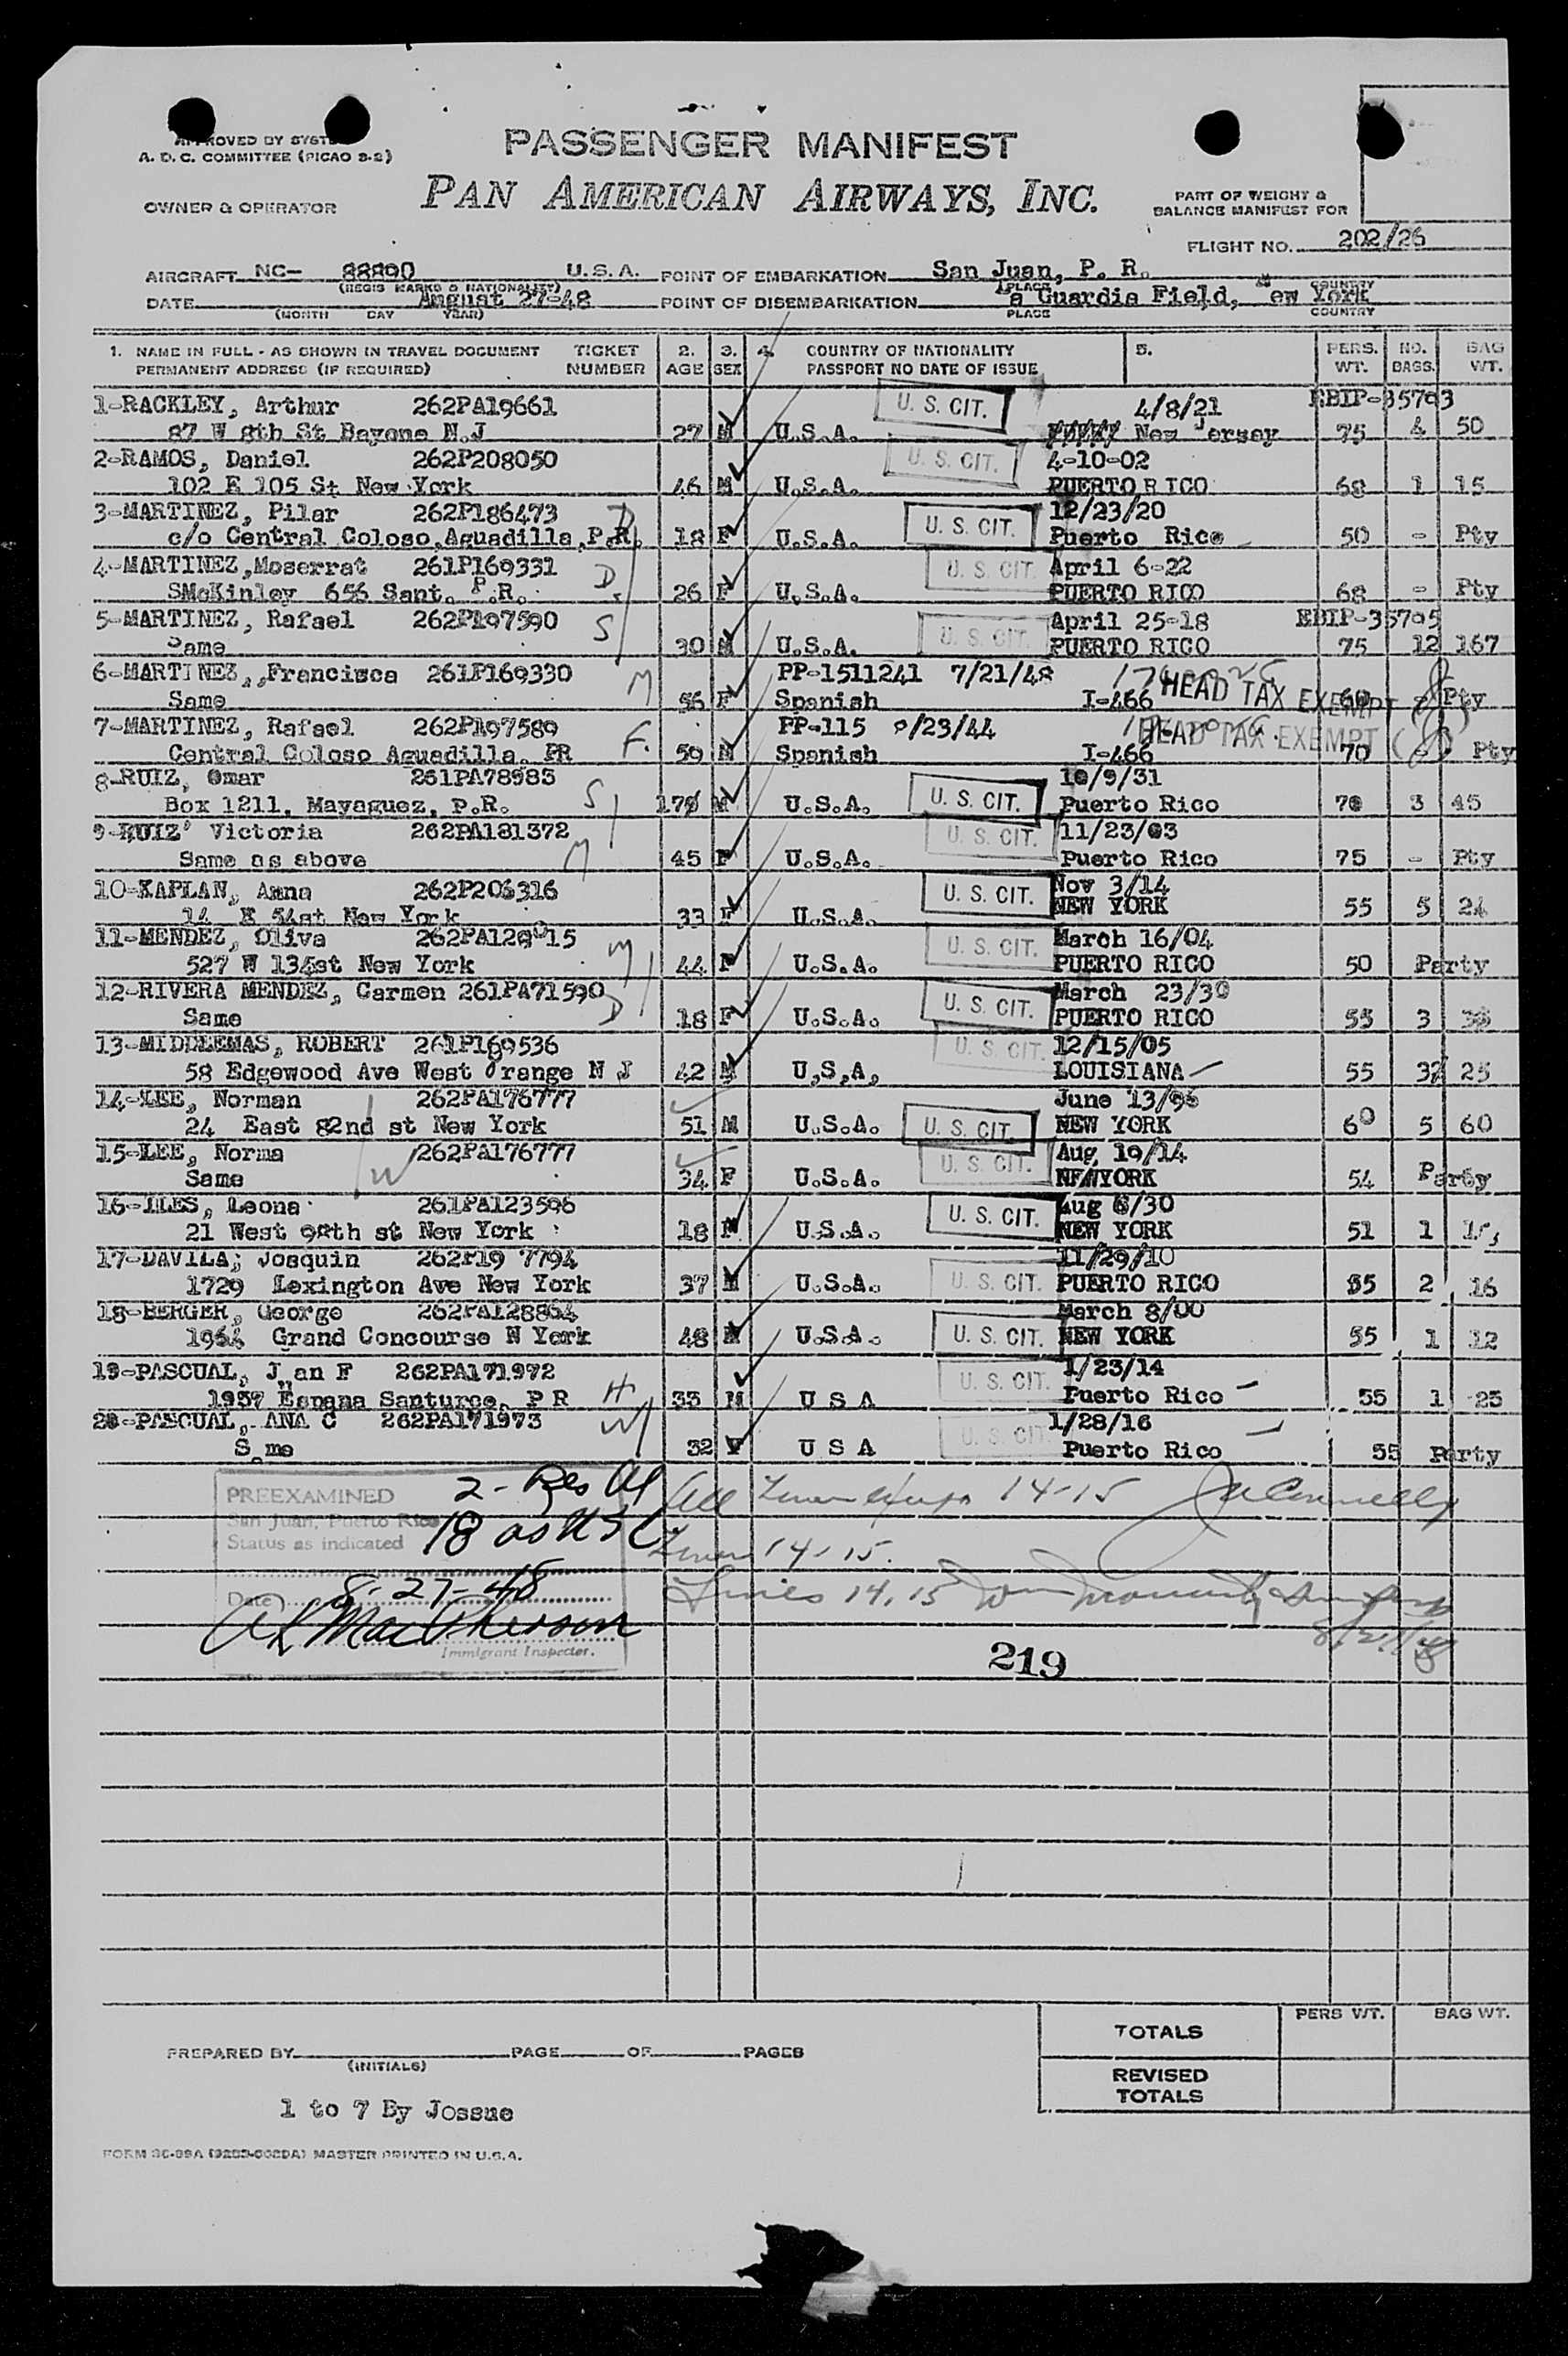 APPROVED BY SYSTEM
A. D. C. COMMITTEE (PICAO 3-2)
PASSENGER MANIFEST
PAN AMERICAN AIRWAYS, INC.
OWNER & OPERATOR
PART OF WEIGHT &
BALANCE MANIFEST FOR
FLIGHT NO. 202/26
AIRCRAFT NC- 88890 U.S.A. POINT OF EMBARKATION San Juan, P. R.
(REGIS MARKS & NATIONALITY) PLACE COUNTRY
DATE August 27-48 POINT OF DISEMBARKATION a Guardia Field, ew York
(MONTH DAY YEAR) PLACE COUNTRY
1. NAME IN FULL - AS SHOWN IN TRAVEL DOCUMENT TICKET 2. 3. 4. COUNTRY OF NATIONALITY 5. PERS. NO. BAG
PERMANENT ADDRESS (IF REQUIRED) NUMBER AGE SEX PASSPORT NO DATE OF ISSUE WT. BAGS. WT.
1-RACKLEY, Arthur 262PA19661 U. S. CIT. 4/8/21 EBIP-35793
87 W 8th St Bayone N.J 27 M U.S.A. New Jersey 75 4 50
2-RAMOS, Daniel 262P208050 U. S. CIT. 4-10-02
102 E 105 St New York 46 M U.S.A. PUERTO RICO 68 1 15
3-MARTINEZ, Pilar 262P186473 D 12/23/20
c/o Central Coloso,Aguadilla,P.R. 18 F U.S.A. U. S. CIT. Puerto Rico 50 - Pty
4-MARTINEZ,Moserrat 261P169331 D. U. S. CIT. April 6-22
SMcKinley 656 Sant. P.R. 26 F U.S.A. PUERTO RICO 68 - Pty
5-MARTINEZ, Rafael 262P197590 S U. S. CIT. April 25-18 EBIP-35795
Same 30 M U.S.A. PUERTO RICO 75 12 167
6-MARTINEZ,,Francisca 261P169330 M PP-1511241 7/21/48
Same 56 F Spanish I-466 HEAD TAX EXEMPT 60 - Pty
7-MARTINEZ, Rafael 262P197589 F. PP-115 9/23/44 HEAD TAX EXEMPT
Central Coloso Aguadilla, PR 59 M Spanish I-466 70 - Pty
8-RUIZ, Omar 261PA78983 S 10/9/31
Box 1211, Mayaguez, P.R. 17 M U.S.A. U. S. CIT. Puerto Rico 70 3 45
9-RUIZ' Victoria 262PA181372 M U. S. CIT. 11/23/03
Same as above 45 F U.S.A. Puerto Rico 75 - Pty
10-KAPLAN, Anna 262P206316 U. S. CIT. Nov 3/14
14 E 54st New York 33 F U.S.A. NEW YORK 55 5 24
11-MENDEZ, Oliva 262PA129015 M U. S. CIT. March 16/04
527 W 134st New York 44 F U.S.A. PUERTO RICO 50 Party
12-RIVERA MENDEZ, Carmen 261PA71590 D U. S. CIT. March 23/30
Same 18 F U.S.A. PUERTO RICO 55 3 38
13-MIDDLEMAS, ROBERT 261P169536 U. S. CIT. 12/15/05
58 Edgewood Ave West Orange N J 42 M U,S,A, LOUISIANA 55 3 25
14-LEE, Norman 262PA176777 June 13/96
24 East 82nd st New York 51 M U.S.A. U. S. CIT. NEW YORK 60 5 60
15-LEE, Norma 262PA176777 U. S. CIT. Aug 19/14
Same W 34 F U.S.A. NEWYORK 54 Party
16-ILES, Leona 261PA123596 U. S. CIT. Aug 8/30
21 West 98th st New York 18 F U.S.A. NEW YORK 51 1
17-DAVILA; Josquin 262P19 7794 U. S. CIT. 11/29/10
1729 Lexington Ave New York 37 M U.S.A. PUERTO RICO 55 2 16
18-BERGER, George 262PA128864 March 8/00
1964 Grand Concourse N York 48 M U.S.A. U. S. CIT. NEW YORK 55 1 12
19-PASCUAL, J an F 262PA171972 H U. S. CIT. 1/23/14
1957 Espana Santurce, P R 33 M U S A Puerto Rico 55 1 25
20-PASCUAL, ANA C 262PA171973 W U. S. CIT. 1/28/16
Same 32 F U S A Puerto Rico 55 Party
PREEXAMINED 2- Res Al All 14-15
San Juan, Puerto Rico
Status as indicated 18 as USC 14, 15.
Date 8-27-48 Lines 14, 15
A K MacPherson
Immigrant Inspector.
219
TOTALS PERS WT. BAG WT.
PREPARED BY PAGE OF PAGES
(INITIALS)
REVISED
TOTALS
1 to 7 By Jossue
MASTER PRINTED IN U.S.A.